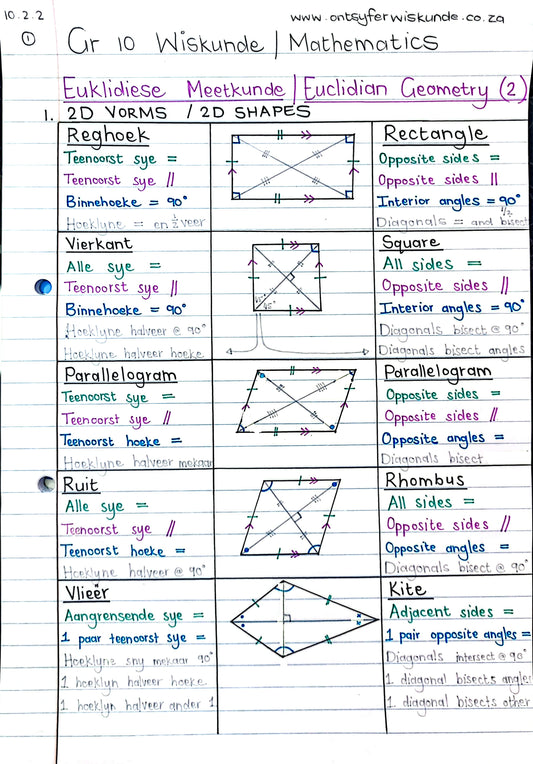 10.2.2
www.ontsyferwiskunde.co.za
①
Gr 10 Wiskunde | Mathematics
Euklidiese Meetkunde | Euclidian Geometry (2)
1. 2D VORMS / 2D SHAPES
Reghoek
Teenoorst sye =
Teenoorst sye //
Binnehoeke = 90°
Hoeklyne = en ½veer
Rectangle
Opposite sides =
Opposite sides ||
Interior angles = 90°
Diagonals = and bisect
Vierkant
Alle sye =
Teenoorst sye //
Binnehoeke = 90°
Hoeklyne halveer @ 90°
Hoeklyne halveer hoeke
45°
45°
Square
All sides =
Opposite sides //
Interior angles = 90°
Diagonals bisect @ 90°
Diagonals bisect angles
Parallelogram
Teenoorst sye =
Teenoorst sye //
Teenoorst hoeke =
Hoeklyne halveer mekaar
Parallelogram
Opposite sides =
Opposite sides //
Opposite angles =
Diagonals bisect
Ruit
Alle sye =
Teenoorst sye //
Teenoorst hoeke =
Hoeklyne halveer @ 90°
Rhombus
All sides =
Opposite sides //
Opposite angles =
Diagonals bisect @ 90°
Vlieër
Aangrensende sye =
1 paar teenoorst sye =
Hoeklyne sny mekaar 90°
1 hoeklyn halveer hoeke
1 hoeklyn halveer ander 1
Kite
Adjacent sides =
1 pair opposite angles =
Diagonals intersect @ 90°
1 diagonal bisects angles
1 diagonal bisects other